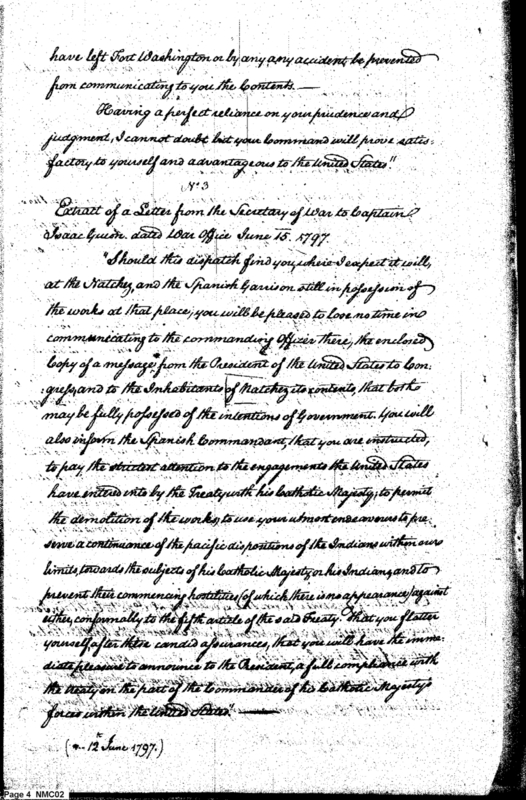 have left Fort Washington or by any any accident, be prevented
from communicating to you the Contents. —
Having a perfect reliance on your prudence and
judgment, I cannot doubt but your Command will prove satis-
factory to yourself and advantageous to the United States."
No. 3
Extract of a Letter from the Secretary of War to Captain
Isaac Guion. dated War Office June 15. 1797.
"Should this dispatch find you, where I expect it will,
at the Natchez, and the Spanish Garrison still in possession of
the works at that place; you will be pleased to lose no time in
communicating to the commanding Officer there, the enclosed
Copy of a message* from the President of the United States to Con-
gress, and to the Inhabitants of Natchez its contents, that both
may be fully possessed of the intentions of Government. You will
also inform the Spanish Commandant, that you are instructed,
to pay the strictest attention to the engagements the United States
have entered into by the Treaty with his Catholic Majesty; to permit
the demolition of the works; to use your utmost endeavours to pre-
serve a continuance of the pacific dispositions of the Indians within our
limits, towards the subjects of his Catholic Majesty, or his Indians, and to
prevent their commencing hostilities (of which there is no appearance) against
either, conformably to the fifth article of the said Treaty. That you flatter
yourself, after these candid assurances, that you will have the imme-
diate pleasure to announce to the President, a full compliance with
the treaty, on the part of the Commander of his Catholic Majesty's
forces within the United States." —
(*.. 12th June 1797.)
Page 4 NMC02